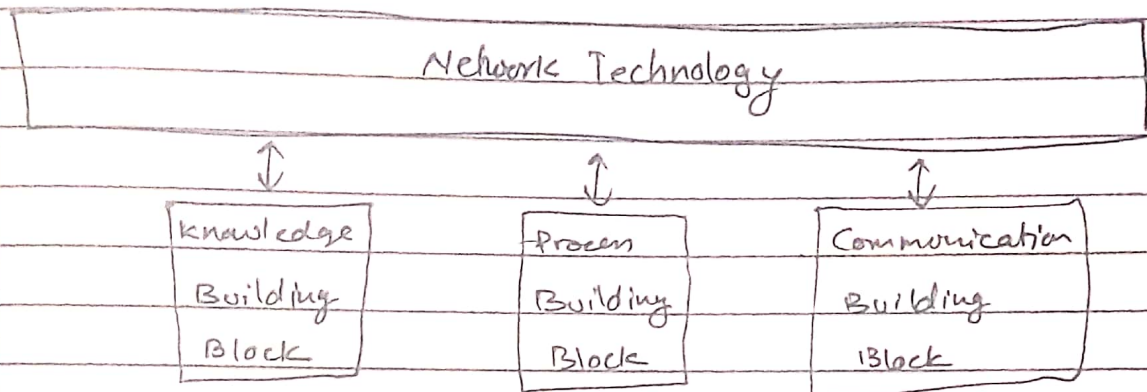 Network Technology
Knowledge
Building
Block
Process
Building
Block
Communication
Building
Block